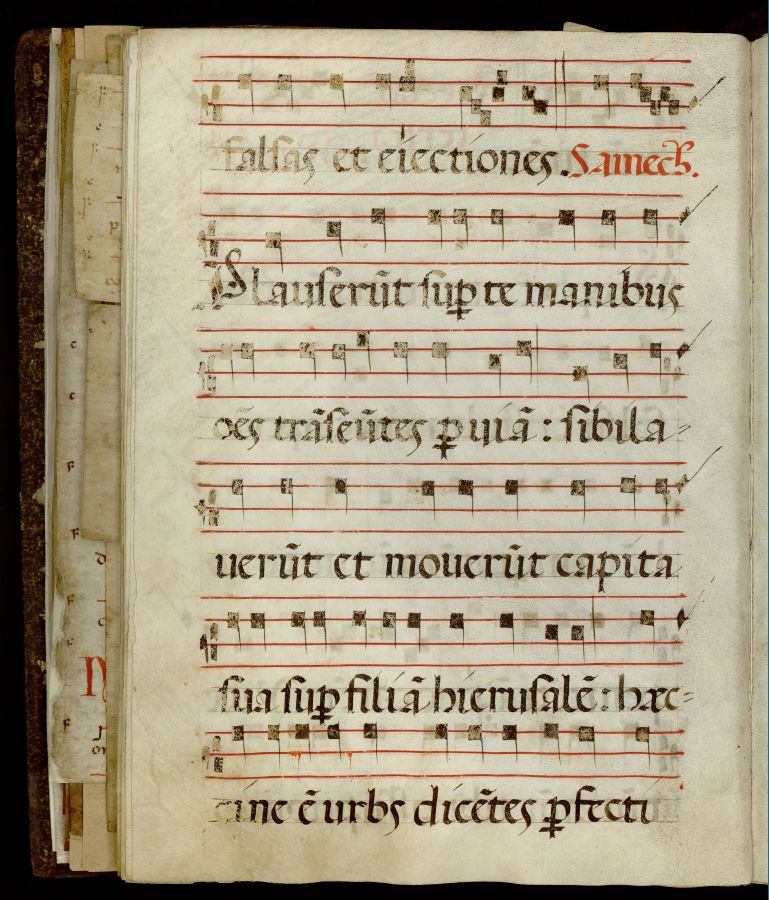 falsas et eiectiones. Samech.
Plauserūt sup te manibus
oēs trāseūtes p uiā: sibila-
uerūt et mouerūt capita
sua sup filiā hierusalē: hæc-
cine ē urbs dicētes pfecti